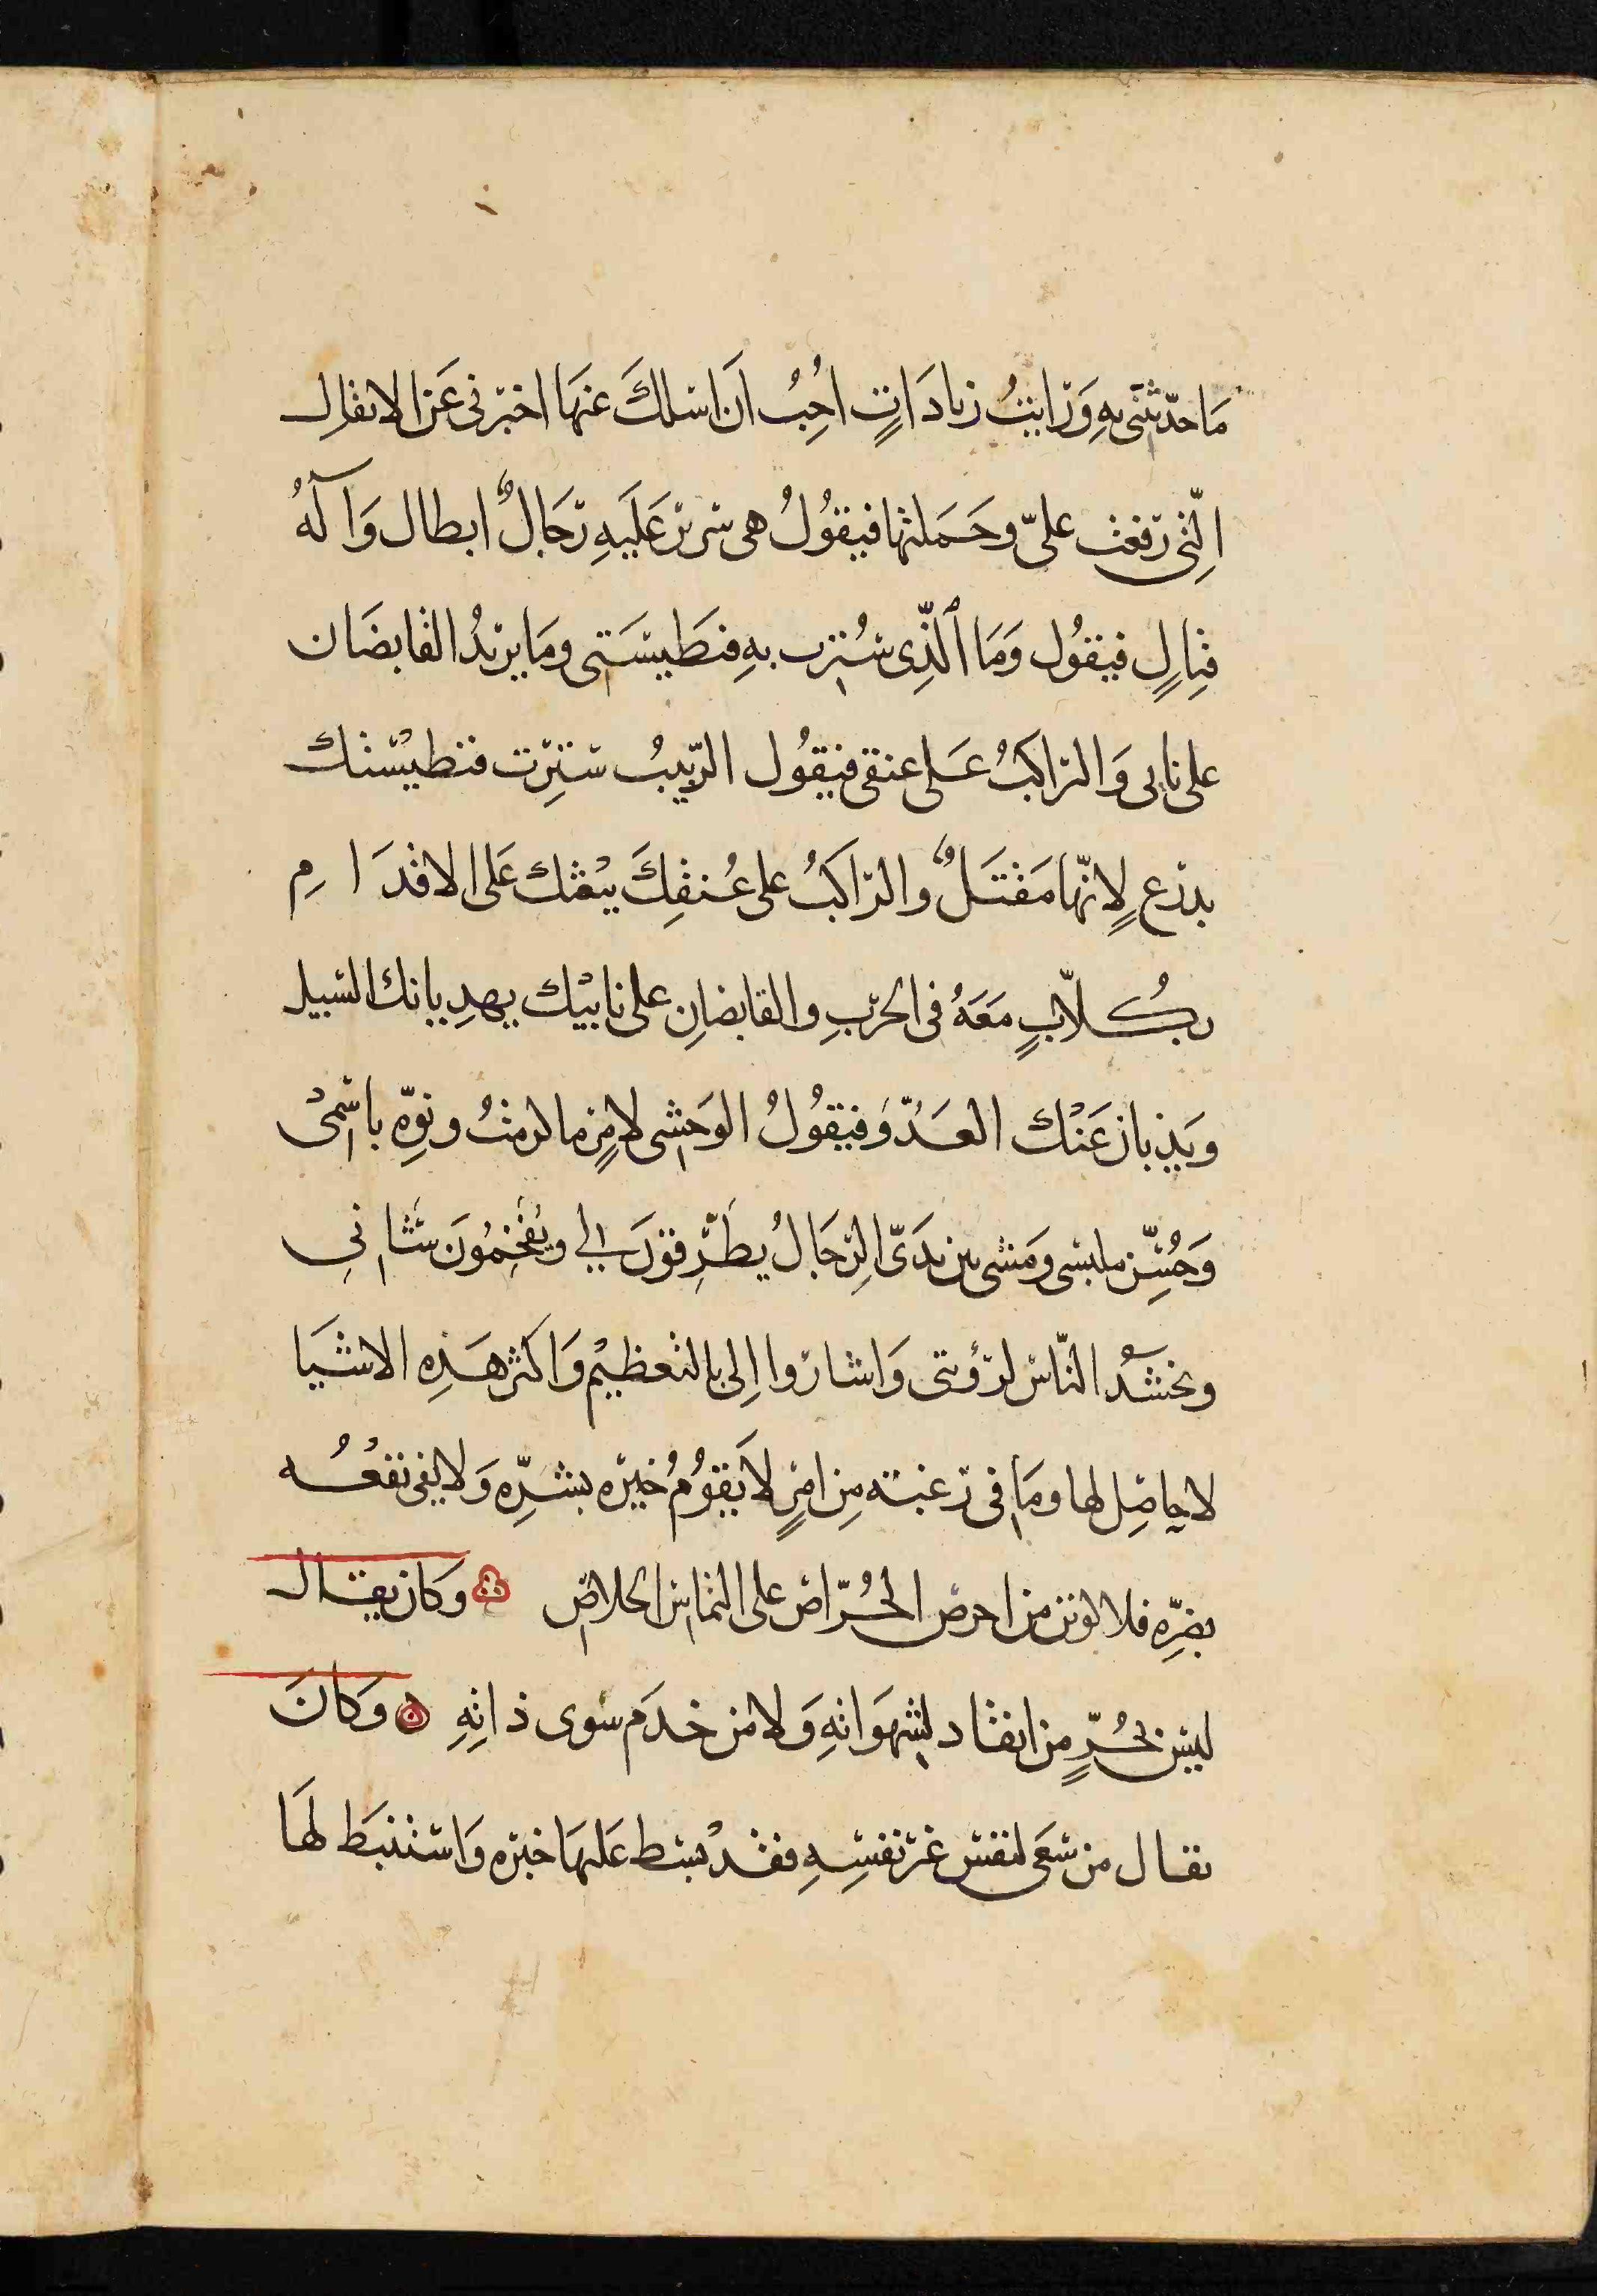 مَا حدّثتنى بهِ وَرَايتُ زيادَاتٍ اُحِبُ اَن اسلكَ عنهَا اخبرنى عَن الاثقالِ
الّتِى رفعت علىّ وحَمَلتها فيقُولُ هى سرير عَلَيهِ رجَالٌ ابطال وَآلهُ
قتِالٍ فيقُول وَمَا الّذِى سُترت بهِ فنطَيسَتى ومَا يريدُ القابضَان
على نابى وَالراكبُ عَلى عنقى فيقُول الرّبيبُ سترِت فنطيسْتك
بدرع لاِنّها مَقتَلٌ والراكبُ على عُنقِكَ يبعثك عَلى الاقدَامِ
بكُلاّبٍ مَعَهُ فى الحربِ والقابضانِ على نابيْك يهدِيانك السّبيل
ويَذبان عَنْك العَدُوّ فيقُولُ الوَحشى لامرٍ ما الرمتُ ونوِّه باسْمى
وَحُسِّن ملبسى وَمشى بين يدَىّ الرِجَالُ يطرِّقونَ لى ويُفَخِمُونَ شانِى
وبحُشدُ النّاس لرؤيتى وَاشاروا اِلى بالتعظيْم وَاكثر هَذِه الاشيَا
لا حاصِل لها ومَا فى رغبته مِن امرٍ لاَ يَقوُمُ خيره بشَرِّه وَلا يفى نفعُه
بضرِّه فلا اكونن من احرص الحُرّاص على التماس الخلاص وَكان يقال
ليس بحُرٍّ من انقاد لشهوَاتهِ وَلا من خدَم سوى ذاتِهِ وَكانَ
يقال من سَعَى لنفس غر نفسِهِ فقدْ بسط عَليهَا خبره وَاستنبَط لهَا